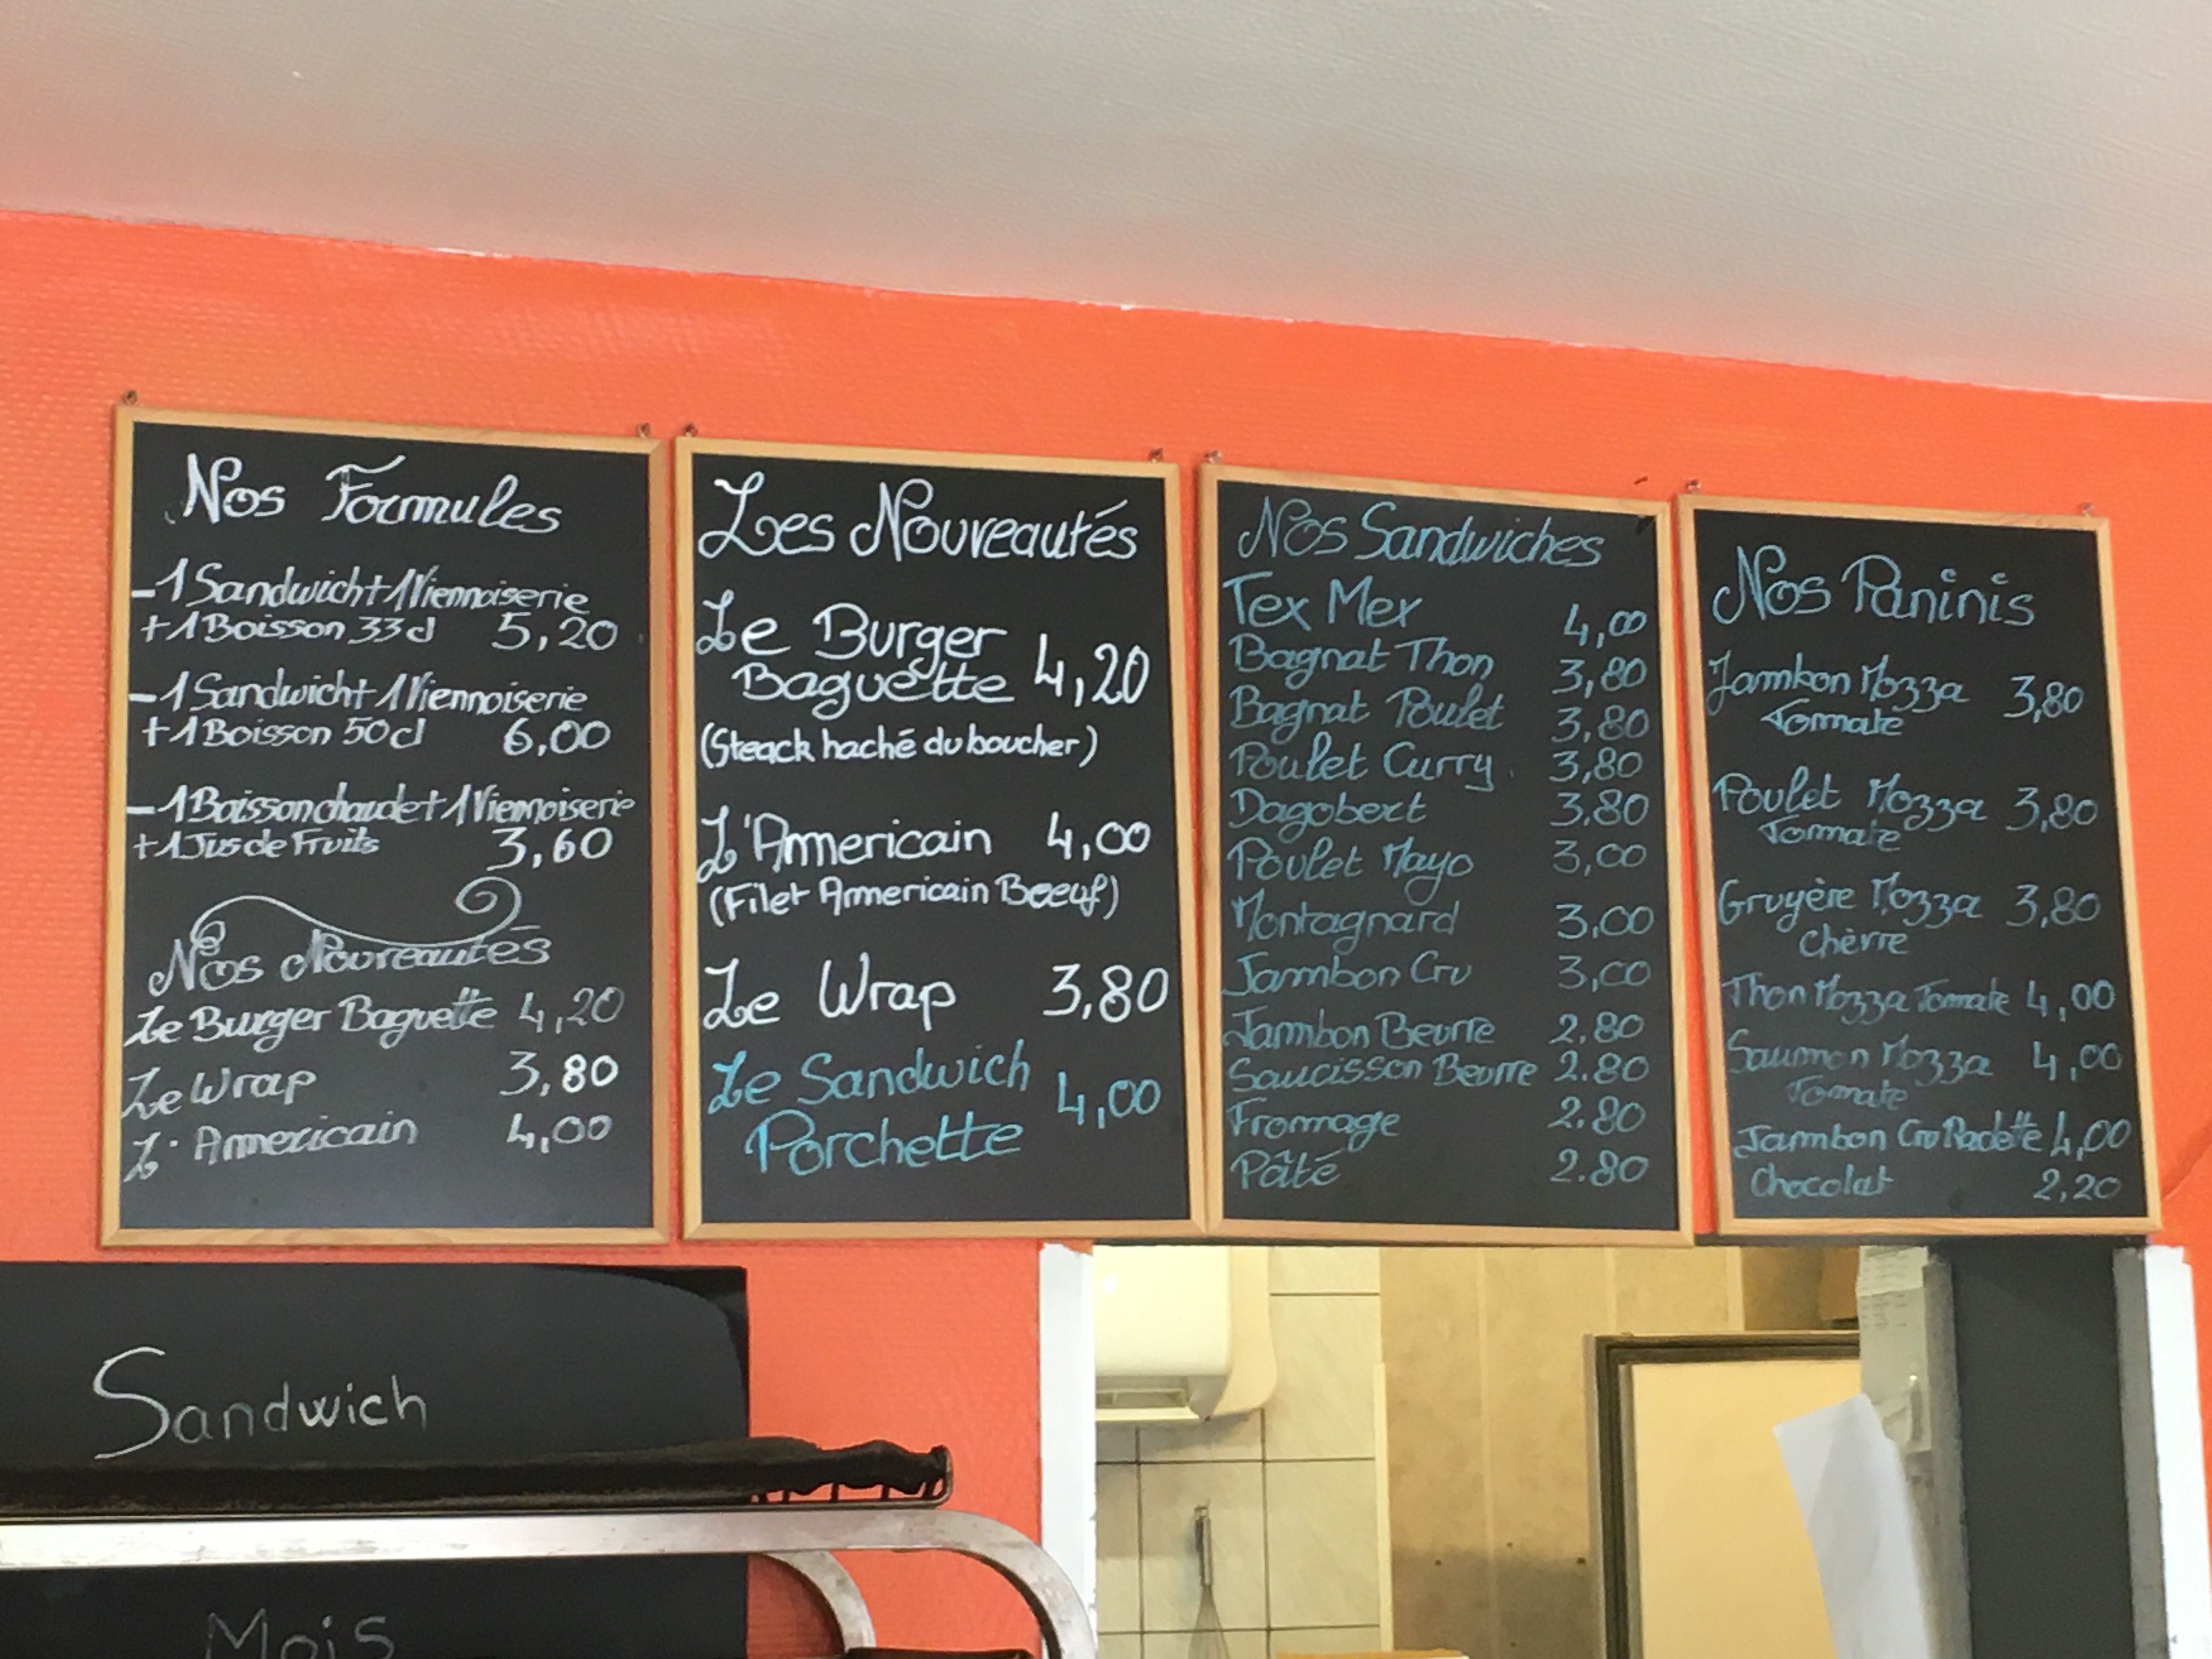 Nos Formules
-1 Sandwich+1Viennoiserie
+1Boisson 33cl 5,20
-1 Sandwich+1Viennoiserie
+1Boisson 50cl 6,00
-1Boisson chaude+1Viennoiserie
+1Jus de Fruits 3,60
Nos Nouveautés
Le Burger Baguette 4,20
Le Wrap 3,80
L'Americain 4,00
Les Nouveautés
Le Burger
Baguette 4,20
(Steack haché du boucher)
L'Americain 4,00
(Filet Americain Boeuf)
Le Wrap 3,80
Le Sandwich
Porchette 4,00
Nos Sandwiches
Tex Mex 4,00
Bagnat Thon 3,80
Bagnat Poulet 3,80
Poulet Curry 3,80
Dagobert 3,80
Poulet Mayo 3,00
Montagnard 3,00
Jambon Cru 3,00
Jambon Beurre 2.80
Saucisson Beurre 2.80
Fromage 2.80
Pâté 2.80
Nos Paninis
Jambon Mozza 3,80
Tomate
Poulet Mozza 3,80
Tomate
Gruyère Mozza 3,80
Chèvre
Thon Mozza Tomate 4,00
Saumon Mozza 4,00
Tomate
Jambon Cru Raclette 4,00
Chocolat 2,20
Sandwich
Mois